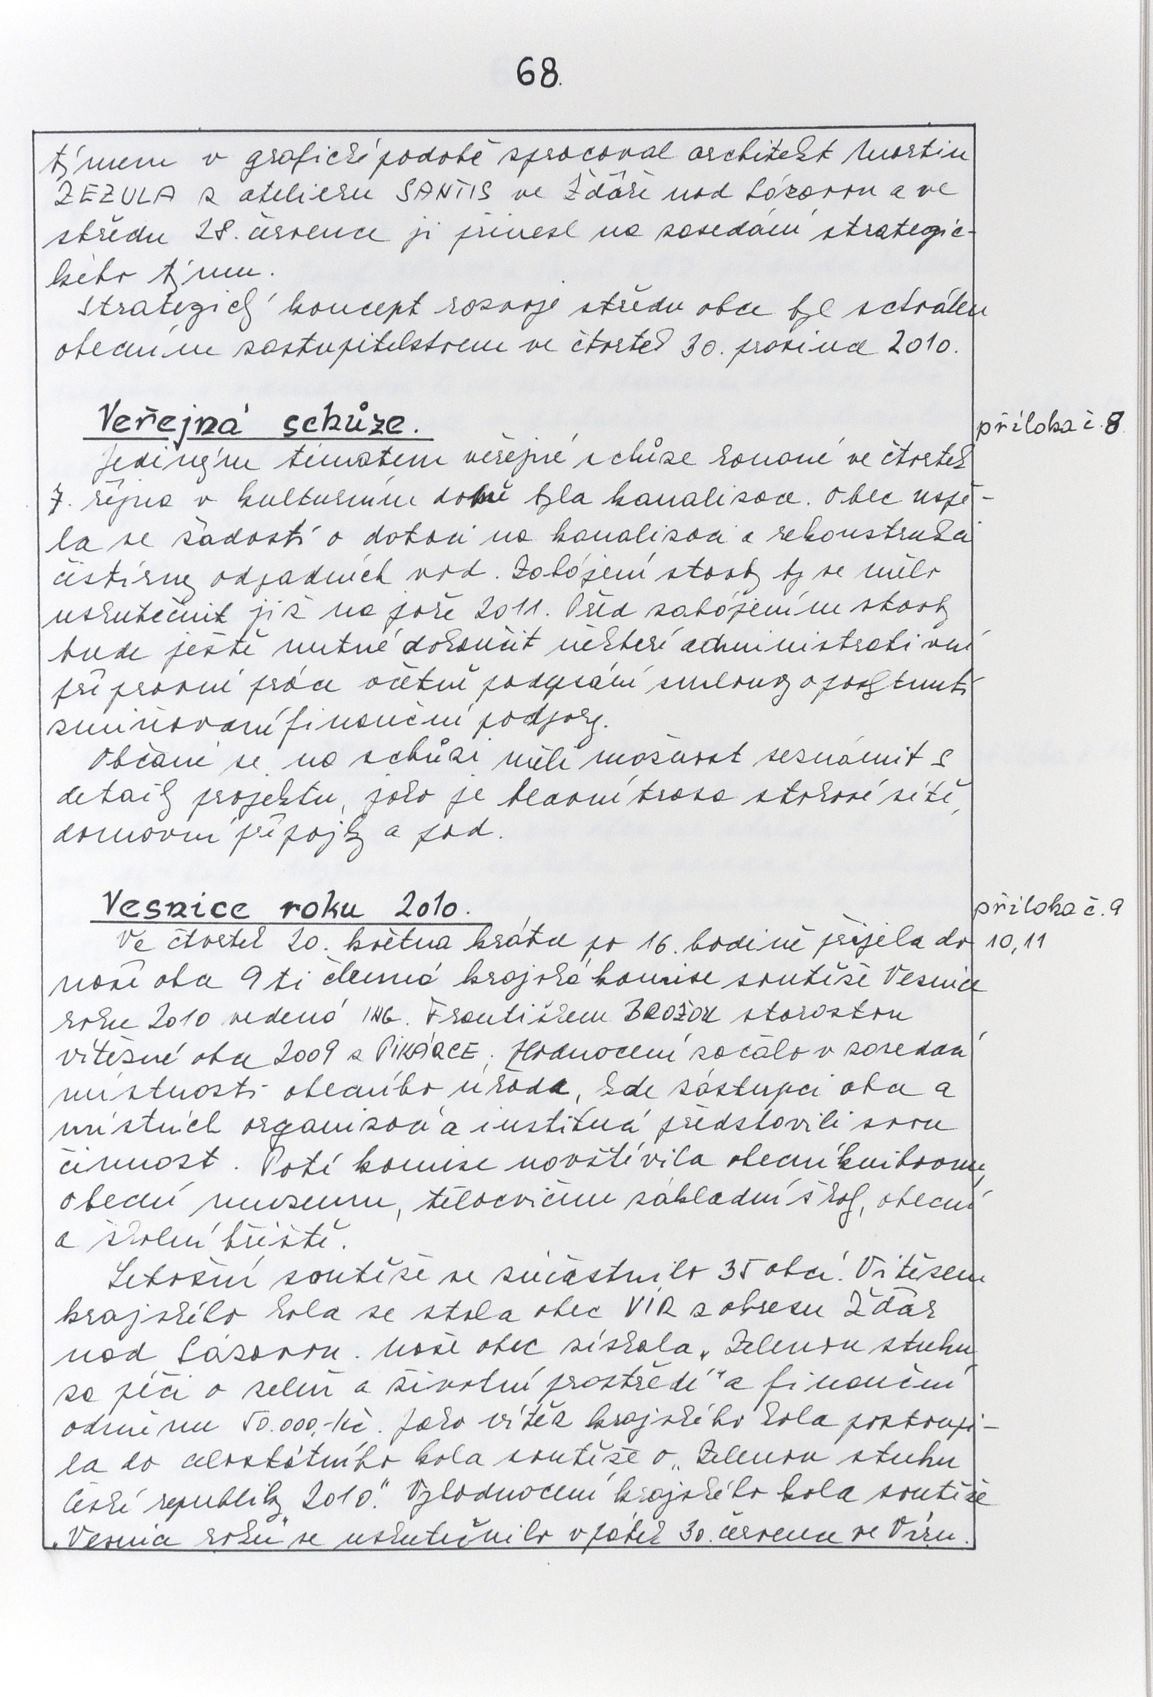 68.
týmem v grafické podobě zpracoval architekt Martin
ZEZULA z ateliéru SANTIS ve Žďáře nad Sázavou a ve
středu 28. července ji přinesl na zasedání strategic-
kého týmu.
Strategický koncept rozvoje středu obce byl schválen
obecním zastupitelstvem ve čtvrtek 30. prosince 2010.
Veřejná schůze.
příloha č. 8
Jediným tématem veřejné schůze konané ve čtvrtek
7. října v kulturním domě byla kanalizace. Obec uspě-
la se žádostí o dotaci na kanalizaci a rekonstrukci
čistírny odpadních vod. Zahájení stavby by se mělo
uskutečnit již na jaře 2011. Před zahájením stavby
bude ještě nutné dokončit některé administrativní
přípravné práce včetně podepsání smlouvy o poskytnutí
zmiňované finanční podpory.
Občané se na schůzi měli možnost seznámit s
detaily projektu, jako je hlavní trasa stokové sítě,
domovní přípojky a pod.
Vesnice roku 2010.
příloha č. 9
Ve čtvrtek 20. května krátce po 16. hodině přijela do
10, 11
naší obce 9ti členná krajská komise soutěže Vesnice
roku 2010 vedená ING. Františkem BROŽOU starostou
vítězné obce 2009 z PIKÁRCE. Hodnocení začalo v zasedací
místnosti obecního úřadu, kde zástupci obce a
místních organizací a institucí představili svou
činnost. Poté komise navštívila obecní knihovnu,
obecní muzeum, tělocvičnu základní školy, obecní
a školní hřiště.
Letošní soutěže se zúčastnilo 35 obcí. Vítězem
krajského kola se stala obec VÍR z okresu Žďár
nad Sázavou. Naše obec získala „Zelenou stuhu
za péči o zeleň a životní prostředí“ a finanční
odměnu 50.000,-Kč. Jako vítěz krajského kola postoupi-
la do celostátního kola soutěže o „Zelenou stuhu
České republiky 2010“. Vyhodnocení krajského kola soutěže
„Vesnice roku“ se uskutečnilo v pátek 30. července ve Víru.